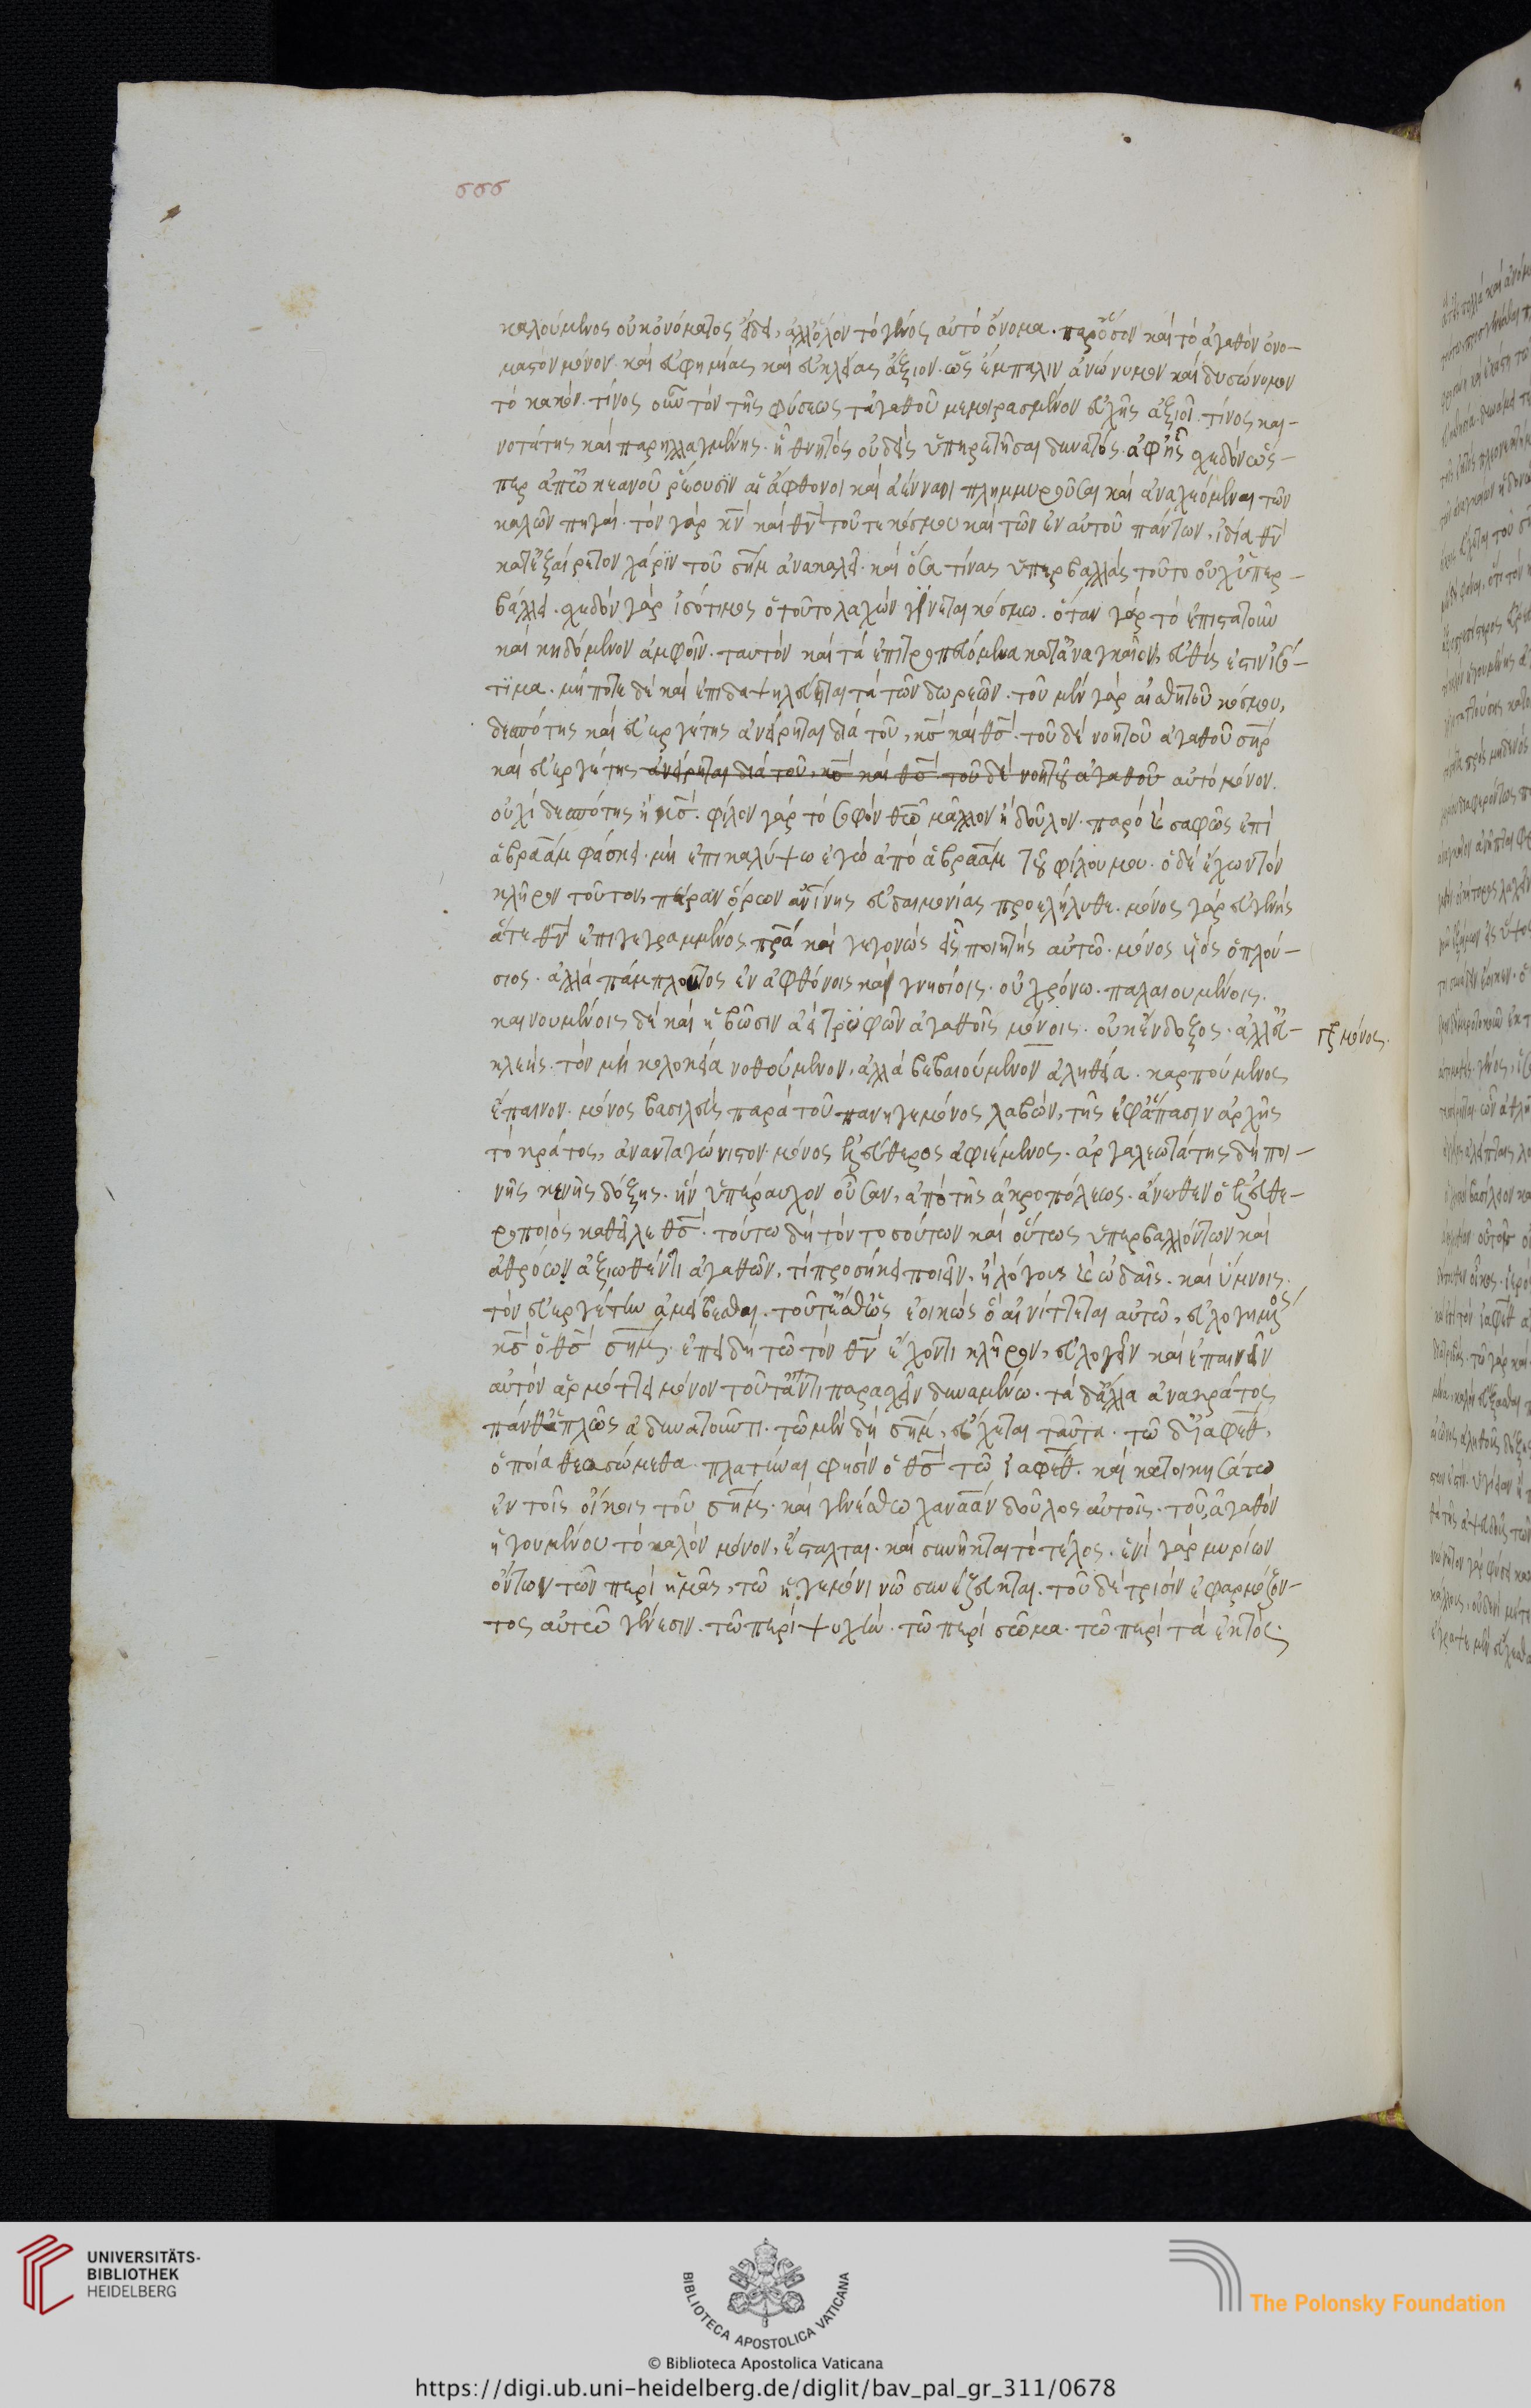 666
καλούμενος οὐκ ὀνόματος εἴδει, ἀλλ' ὅλον τὸ γένος αὐτὸ ὄνομα. παρ' ὅσον καὶ τὸ ἀγαθὸν ὀνο-
μαστὸν μόνον. καὶ εὐφημίας καὶ εὐκλείας ἄξιον. ὡς ἔμπαλιν ἀνώνυμον καὶ δυσώνυμον
τὸ κακόν. τίνος οὖν τὸν τῆς φύσεως τἀγαθοῦ μεμοιρασμένον εὐχῆς ἀξιοῖ. τίνος και-
νοτάτης καὶ παρηλλαγμένης. ᾗ θνητὸς οὐδεὶς ὑπηρετῆσαι δυνατός. ἀφ' ἧς σχεδὸν ὥσ-
περ ἀπ' ὠκεανοῦ ῥέουσϊν αἱ ἄφθονοι καὶ ἀένναοι πλημμυροῦσαι καὶ ἀναχεόμεναι τῶν
καλῶν πηγαί. τὸν γὰρ κν καὶ θν τοῦ τε κόσμου καὶ τῶν ἐν αὐτοῦ πάντων, ἰδία θν
κατ' ἐξαίρετον χάρϊν τοῦ σὴμ ἀνακαλεῖ. καὶ ὅσα τίνας ὑπερβολλὰς τοῦτο οὐχ' ὑπερ-
βάλλει. σχεδὸν γὰρ ἰσότιμος ὁ τοῦτο λαχὼν γίνεται κόσμω. ὅταν γὰρ τὸ ἐπιστατοῦν
καὶ κηδόμενον ἀμφοῖν. ταυτὸν καὶ τὰ ἐπιτροπευόμενα κατ' ἀναγκαῖον, εὐθύς ἐστιν ἰσό-
τϊμα. μή ποτε δὲ καὶ ἐπιδαψιλεύεται τὰ τῶν δωρεῶν. τοῦ μὲν γὰρ αἰσθητοῦ κόσμου,
δεσπότης καὶ εὐεργέτης ἀνείρηται διὰ τοῦ, κσ καὶ θσ. τοῦ δὲ νοητοῦ ἀγαθοῦ σηρ
καὶ εὐεργέτης ἀνείρηται διὰ τοῦ, κσ καὶ θσ τοῦ δὲ νοητοῦ ἀγαθοῦ αὐτὸ μόνον.
οὐχὶ δεσπότης ἢ κσ. φίλον γὰρ τὸ σοφὸν θεῶ μᾶλλον ἢ δοῦλον. παρὸ καὶ σαφῶς ἐπὶ
ἀβραὰμ φάσκει. μὴ ἐπικαλύψω ἐγὼ ἀπὸ ἀβραὰμ τοῦ φίλου μου. ὁ δὲ ἔχων τὸν
κλῆρον τοῦτον, πέραν ὅρων ἀνίνης εὐδαιμονίας προελήλυθε. μόνος γὰρ εὐγενὴς
ἅτε θν ἐπιγεγραμμένος πρα καὶ γεγονὼς εἰσποιητὸς αὐτῶ. μόνος υἱός. ὁ πλού-
σιος. ἀλλὰ πάμπλουτος ἐν ἀφθόνοις καὶ γνησίοις. οὐ χρόνω. παλαιουμένοις.
καινουμένοις δὲ καὶ ἡβῶσιν ἀεὶ τρυφῶν ἀγαθοῖς μόνοις. οὐκ ἔνδοξος. ἀλλ' εὐ-
κλεής. τὸν μὴ κολακεία νοθούμενον, ἀλλὰ βεβαιούμενον ἀληθεία. καρπούμενος
ἔπαινον. μόνος βασιλεὺς παρὰ τοῦ πανηγεμόνος λαβών, τῆς ἐφ' ἅπασιν ἀρχῆς
τὸ κράτος, ἀνανταγώνιστον. μόνος ἐλεύθερος ἀφιέμενος. ἀργαλεωτάτης δεσποί-
νης κενῆς δόξης. ἣν ὑπέραυχον οὖσαν, ἀπὸ τῆς ἀκροπόλεως. ἄνωθεν ὁ ἐλευθε-
ροποιὸς καθεῖλε θσ. τούτω δὴ τὸν τοσούτων καὶ οὕτως ὑπερβαλλόντων καὶ
ἀθρόων ἀξιωθέντι ἀγαθῶν, τί προσήκει ποιεῖν, ἢ λόγοις καὶ ὠδαῖς. καὶ ὕμνοις.
τὸν εὐεργέτην ἀμείβεσθαι. τοῦτ' ἔσθ' ὡς ἐοικὼς ὃ αἰνίττεται αὐτῶ, εὐλογημένος
κσ ὁ θσ σὴμ. ἐπειδὴ τῶ τὸν θν ἔχοντι κλῆρον, εὐλογεῖν καὶ ἐπαινεῖν
αὐτὸν ἁρμόττει μόνον τοῦτ' ἀντιπαρασχεῖν δυναμένω. τὰ δ' ἄλλα ἀνακράτος
πάνθ' ἁπλῶς ἀδυνατοῦντι. τῶ μὲν δὴ σὴμ, εὔχεται ταῦτα. τῶ δ' ἰαφεθ,
ὁποῖα θεασώμεθα. πλατύναι φησὶν ὁ θσ τῶ ἰαφεθ. καὶ κατοικησάτω
ἐν τοῖς οἴκοις τοῦ σὴμ. καὶ γενέσθω χαναὰν δοῦλος αὐτοῖς. τοῦ ἀγαθὸν
ἡγουμένου τὸ καλὸν μόνον, ἔσταλται. καὶ συνῆκται τὸ τέλος. ἑνὶ γὰρ μυρίων
ὄντων τῶν περὶ ἡμᾶς, τῶ ἡγεμόνι νῶ συνέζευκται. τοῦ δὲ τρισὶν ἐφαρμόζον-
τος αὐτῶ γένεσιν. τῶ περὶ ψυχήν. τῶ περὶ σῶμα. τῶ περὶ τὰ ἐκτός.
μόνος.
UNIVERSITÄTS-
BIBLIOTHEK
HEIDELBERG
BIBLIOTECA APOSTOLICA VATICANA
The Polonsky Foundation
© Biblioteca Apostolica Vaticana
https://digi.ub.uni-heidelberg.de/diglit/bav_pal_gr_311/0678